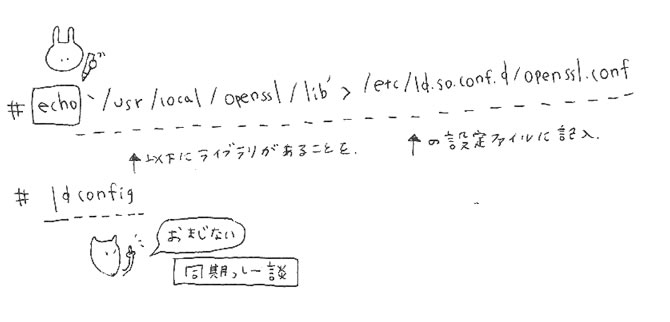 # echo '/usr/local/openssl/lib' > /etc/ld.so.conf.d/openssl.conf
↑以下にライブラリがあることを. ↑の設定ファイルに記入.
# ldconfig
おまじない
同期っしー談